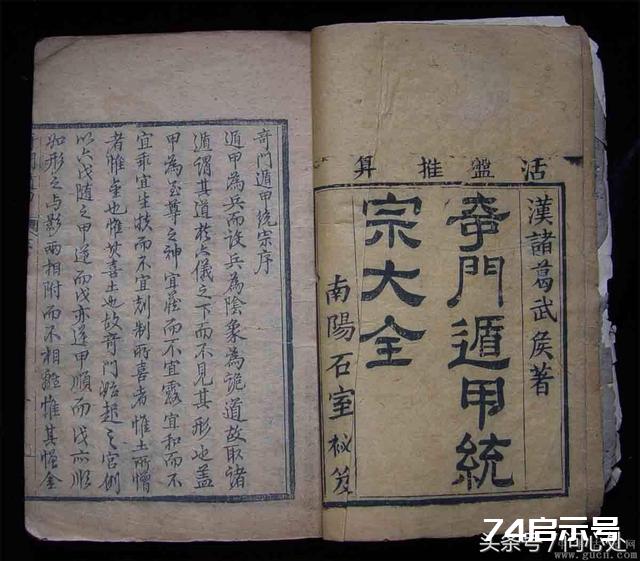 活盤推算
漢諸葛武矦著
奇門遁甲統
宗大全
南陽石室秘笈
奇門遁甲統宗序
遁甲為兵而設兵為陰象為詭道故取諸
遁謂其道於六儀之下而不見其形也蓋
甲為至尊之神宜藏而不宜露宜和而不
宜乖宜生扶而不宜剋制所喜者惟土所憎
者惟金也惟其喜土也故奇門始起之宮例
以六戊隨之甲逆而戊亦逆甲順而戊亦順
如形之与影兩相附而不相離惟其憎金
74启示号
头条号/问心处
www.gucn.com